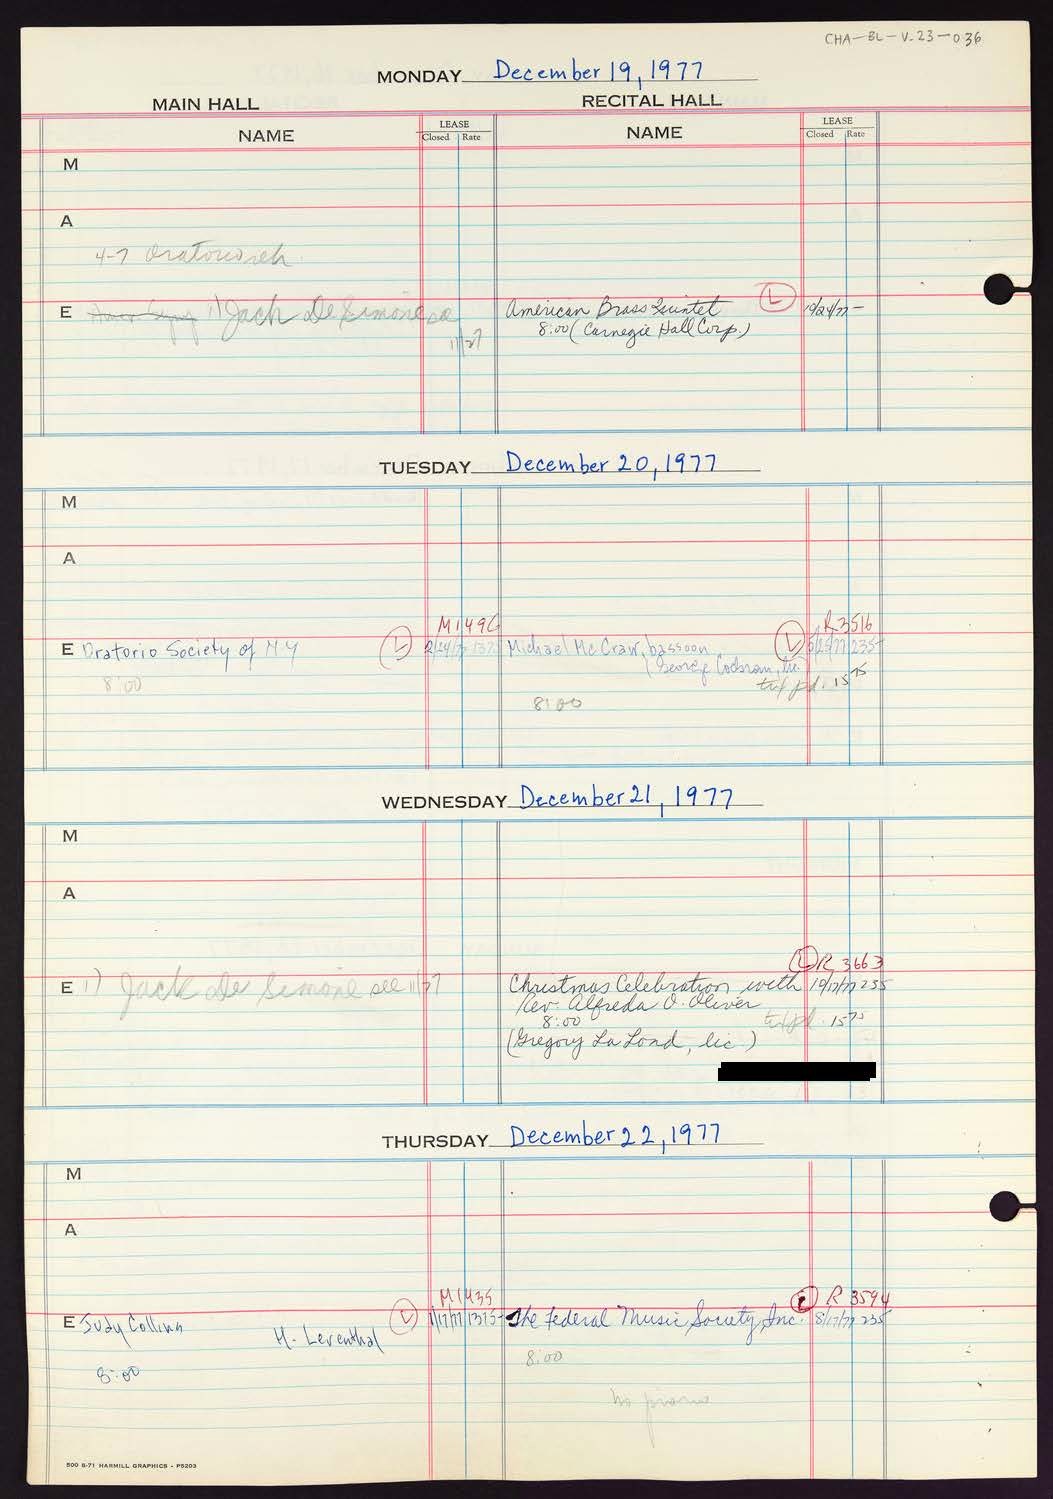 CHA-BL-V.23-036
MONDAY December 19, 1977
MAIN HALL RECITAL HALL
NAME LEASE Closed Rate NAME LEASE Closed Rate
M
A
4-7 Oratorio reh.
E 1) Jack De Simone see 11/27
American Brass Quintet L 10/24/77 -
8:00 (Carnegie Hall Corp.)
TUESDAY December 20, 1977
M
A
M1496 R3516
E Oratorio Society of N Y L 2/24/77 1375 Michael McCraw, bassoon L 5/25/77 235-
(George Cochran, lic.
8:00 tx/pd. 15 75
8:00
WEDNESDAY December 21, 1977
M
A
L R 3663
E 1) Jack De Simone see 11/27 Christmas Celebration with 10/17/77 235
Rev. Alfreda O. Oliver
8:00 tx/pd. 15 75
(Gregory La Lond, lic.)
THURSDAY December 22, 1977
M
A
M1435 L R 3594
E Judy Collins L 1/17/77 1375- The Federal Music Society, Inc. 8/17/77 235
H. Leventhal
8:00 8:00
no piano
500 8-71 HARMILL GRAPHICS - P5203